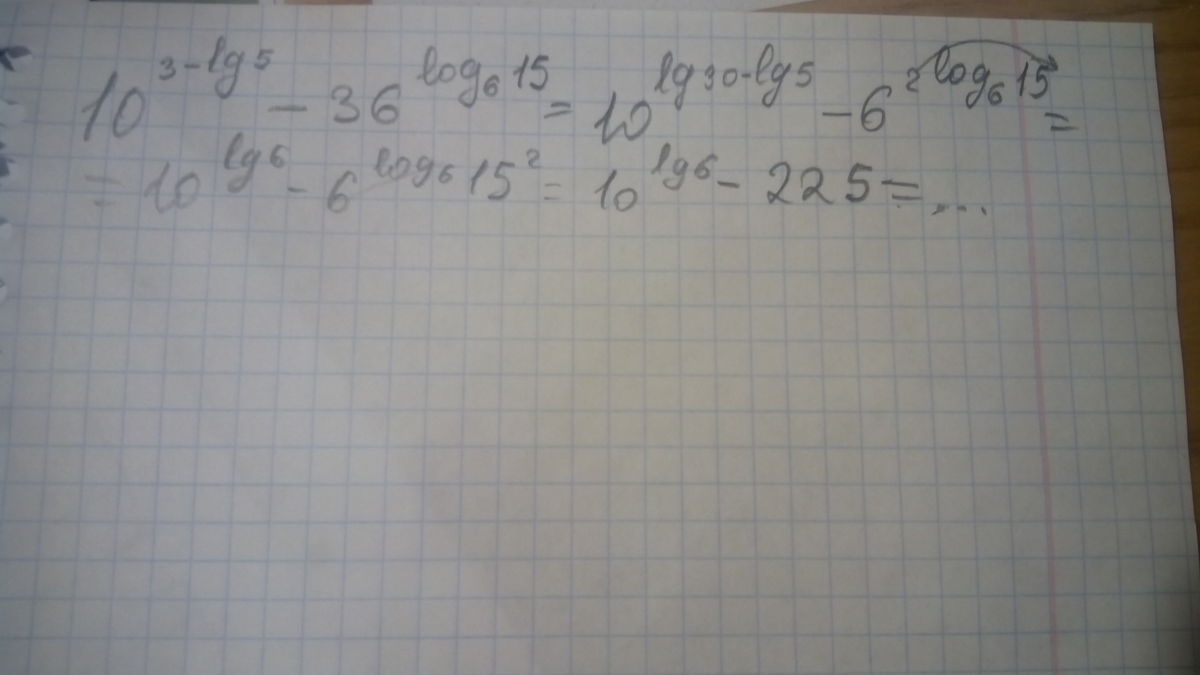 10^(3-lg5) - 36^(log₆15) = 10^(lg30-lg5) - 6^(2log₆15) =
= 10^(lg6) - 6^(log₆15²) = 10^(lg6) - 225 = ...